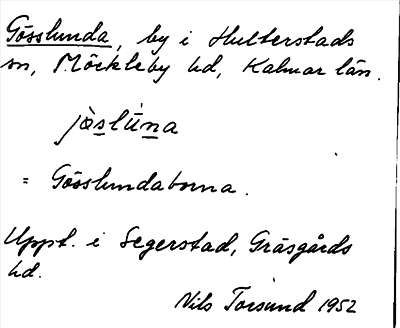 Gösslunda, by i Hulterstads
sn, Möckleby hd, Kalmar län.
jös̲lún̲a
= Gösslundaborna.
Uppt. i Segerstad, Gräsgårds
hd.
Nils Torsund 1952